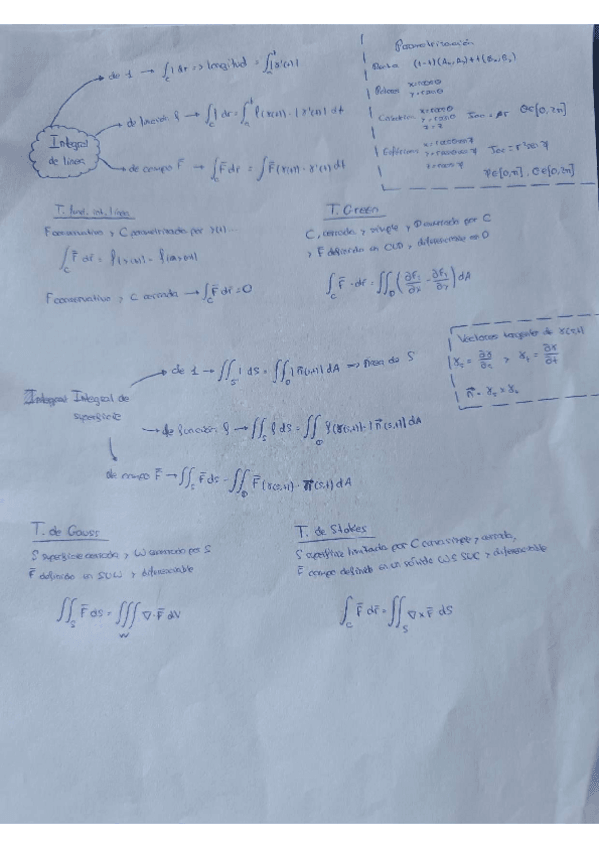 Parametrización
Recta (1-t)(A₁,A₂)+t(B₁,B₂)
Polares x=rcosθ
y=rsenθ
x=rcosθ
y=rsenθ Jac = r θ∈[0,2π]
z=z
Esféricas
φ∈[0,π], θ∈[0,2π]
Integral
de línea
de 1 → ∫_C 1 dr => longitud = ∫|γ'(t)|
de función f → ∫_C f dr = ∫ f(γ(t)) · |γ'(t)| dt
de campo F̄ → ∫_C F̄ dr̄ = ∫ F̄(γ(t)) · γ'(t) dt
T. fund. int. línea
F conservativo y C parametrizada por γ(t)...
F conservativo y C cerrada → ∫_C F̄ dr̄ = 0
T. Green
C, cerrada y simple y D encerrada por C
y F definido en C∪D y diferenciable en D
Vectores tangentes de γ(s,t)
γₛ = ∂γ/∂s , γₜ = ∂γ/∂t
n̄ = γₛ × γₜ
Integral de
superficie
de 1 → ∬_S 1 dS = ∬_D |n̄(s,t)| dA => Área de S
de función f → ∬_S f dS = ∬_D f(γ(s,t)) · |n̄(s,t)| dA
de campo F̄ → ∬_S F̄ dS = ∬_D F̄(γ(s,t)) · n̄(s,t) dA
T. de Gauss
S superficie cerrada y W encerrado por S
F̄ definido en S∪W y diferenciable
∬_S F̄ dS = ∭_W ∇·F̄ dV
T. de Stokes
S superficie limitada por C curva simple y cerrada,
F̄ campo definido en un sólido W S∪C y diferenciable
∫_C F̄ dr̄ = ∬_S ∇×F̄ dS